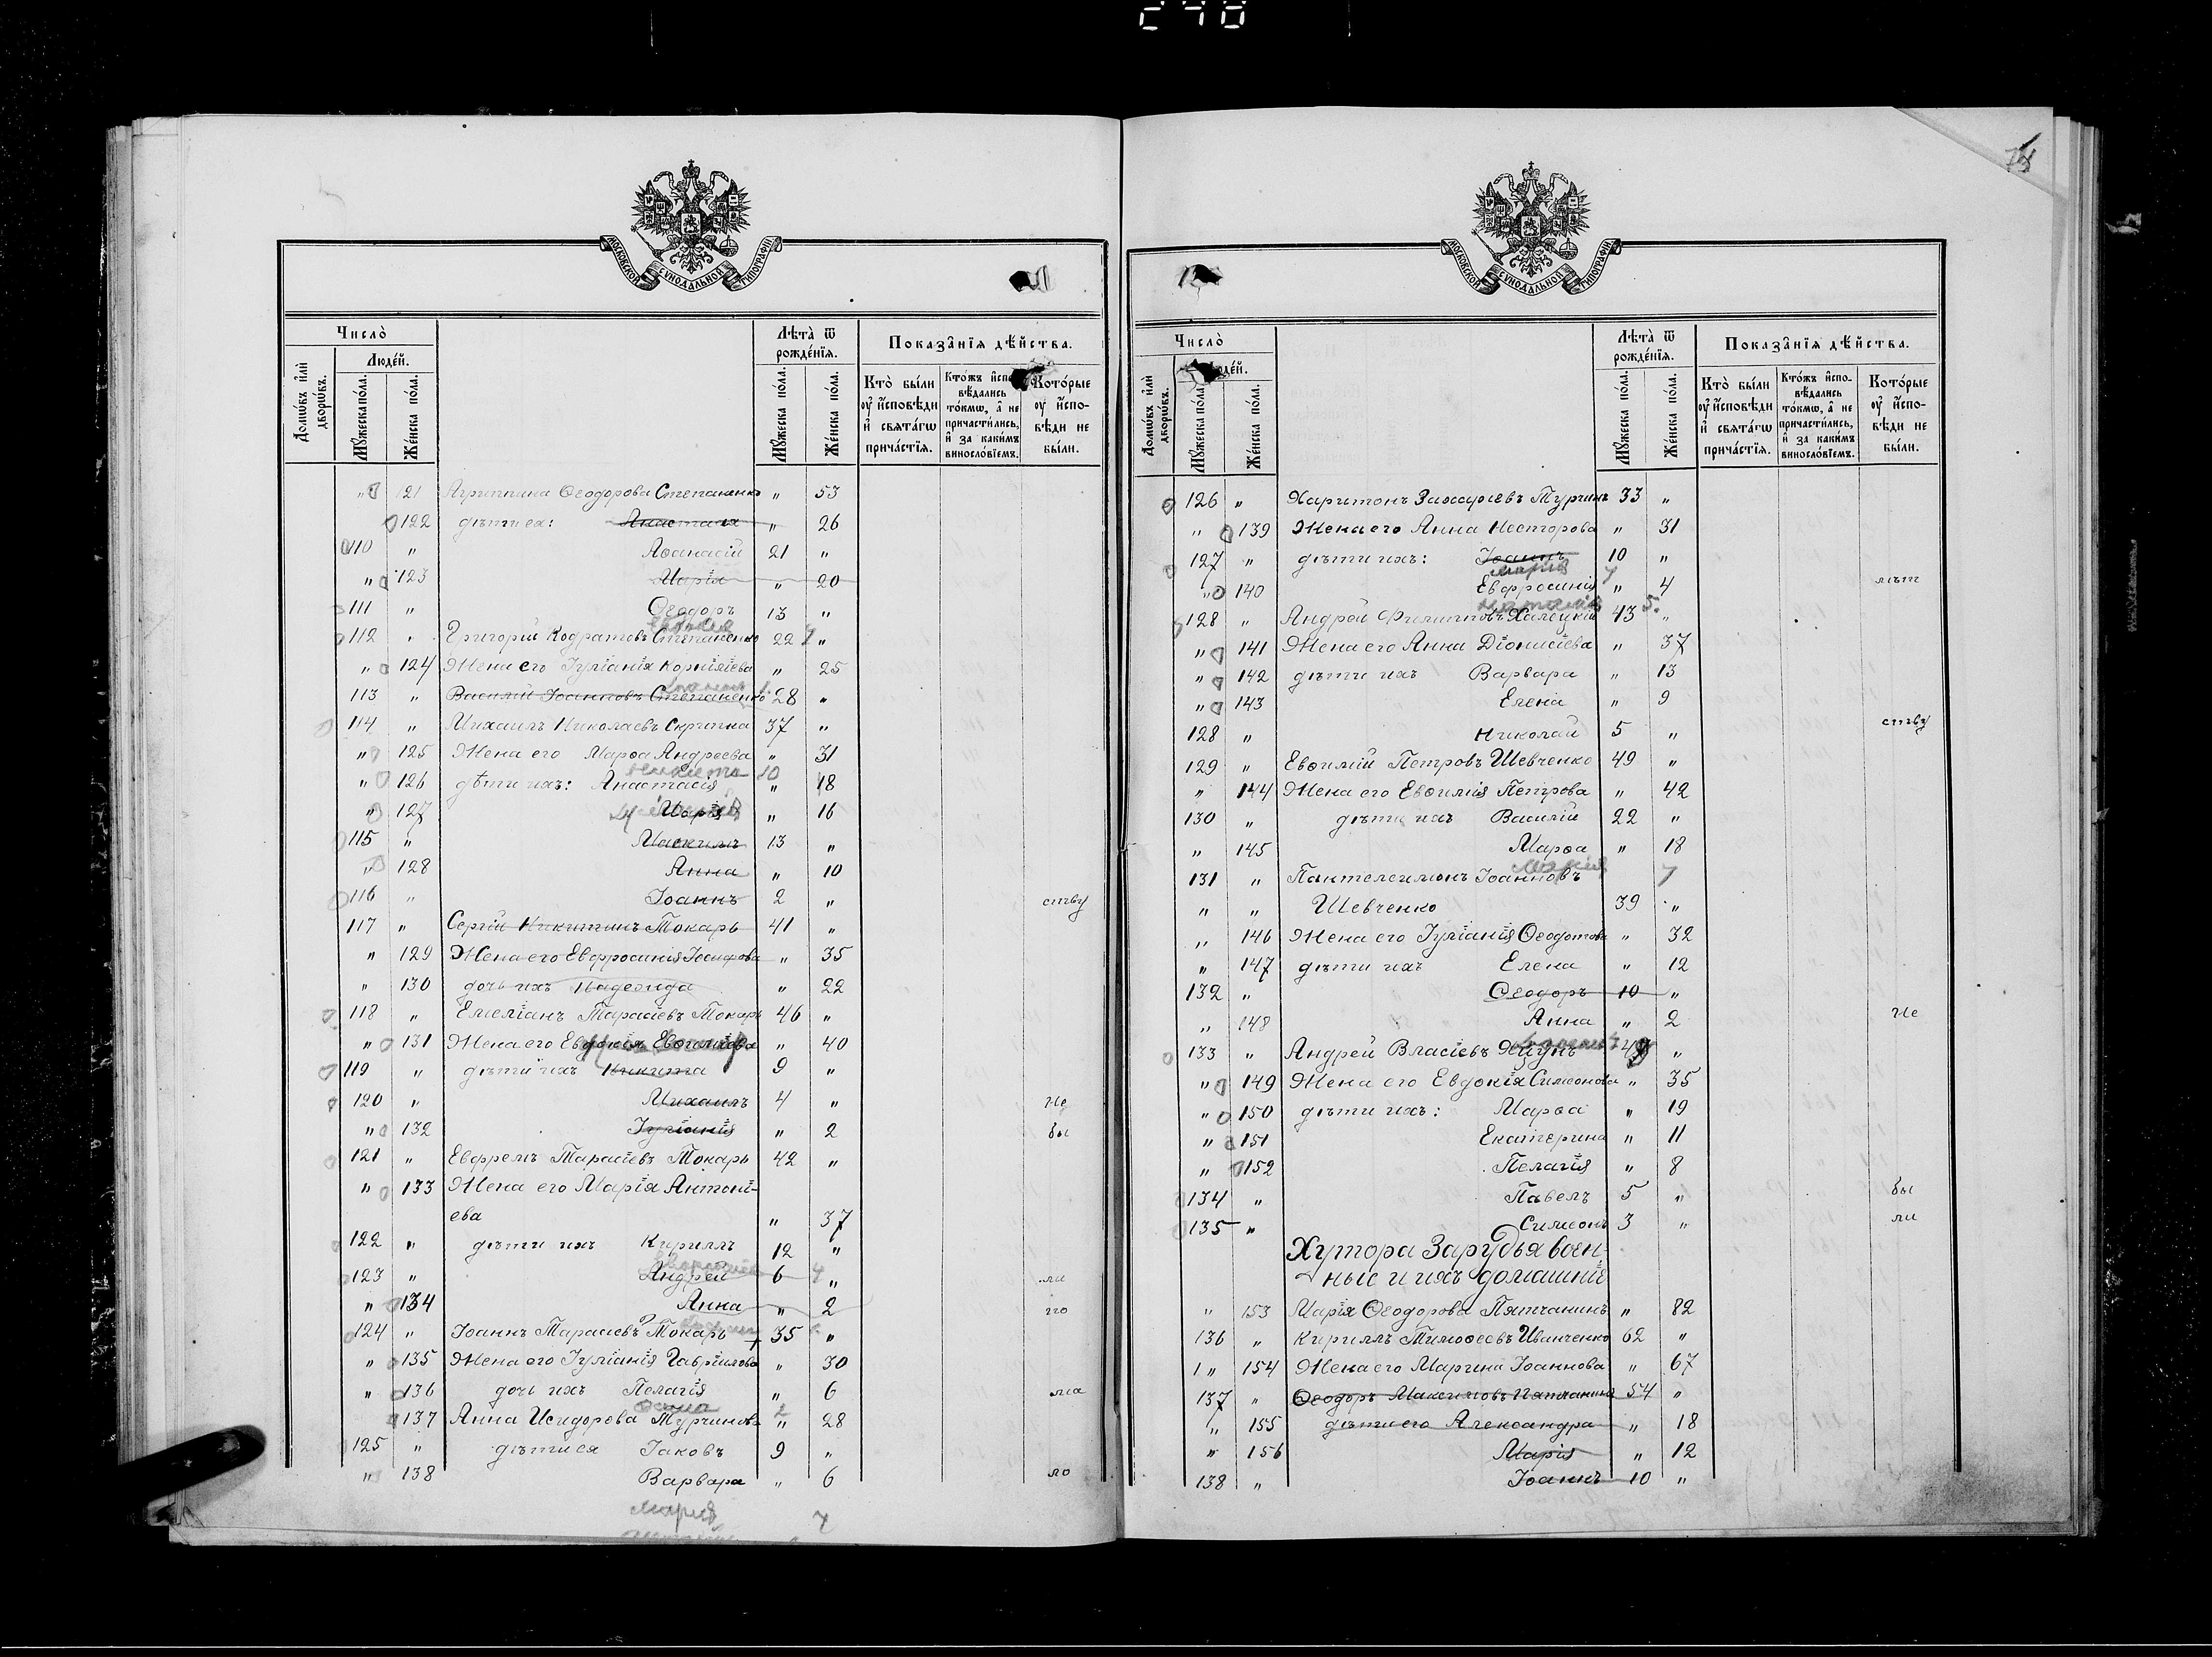 МОСКОВСКОЙ СѴНОДАЛЬНОЙ ТИПОГРАФІИ
Число̀
Люде́й.
Лѣта̀ ѿ рожде́нїѧ.
Показа̑нїѧ дѣ́йства.
Домѡ́въ и҆лѝ дворѡ́въ.
Мꙋ́жеска по́ла.
Же́нска по́ла.
Мꙋ́жеска по́ла.
Же́нска по́ла.
Кто̀ бы́ли ᲂу҆ и҆́сповѣди и҆ свѧта́гѡ прича́стїѧ.
Кто́жъ и҆спо-
вѣ́дались то́кмѡ, а҆ не причасти́лись, и҆ за каки́мъ винослові́емъ.
Кото́рые ᲂу҆ и҆́спо-
вѣди не бы́ли.
" 121 Агриппина Ѳеодорова Степаненко " 53
122 дѣти ея: Анастасія " 26
110 " Аѳанасій 21 "
" 123 Марія " 20
111 " Ѳеодоръ 13 "
112 " Григорій Кодратовъ Степаненко 22 "
" 124 Жена его Іуліанія Корнилiева " 25
113 " Василій Іоанновъ Степаненко 28 "
114 " Михаилъ Николаевъ Скрипка 37 "
" 125 Жена его Марѳа Андреева " 31
Никита 10
" 126 дѣти ихъ: Анастасія " 18
" 127 Марія " 16
115 " Максимъ 13 "
" 128 Анна " 10
116 " Іоаннъ 2 " ству
117 " Сергій Никитинъ Токарь 41 "
" 129 Жена его Евфросинія Іосифова " 35
" 130 дочь ихъ Надежда " 22
118 " Емеліанъ Тарасіевъ Токарь 46 "
" 131 Жена его Евдокія Евѳиміева " 40
119 " дѣти ихъ Никита 9 "
120 " Михаилъ 4 " не
" 132 Іуліанія " 2 бы
121 " Ефремъ Тарасіевъ Токарь 42 "
" 133 Жена его Марія Антоні-
ева " 37
122 " дѣти ихъ Кириллъ 12 "
123 " Андрей 6 " ли
" 134 Анна " 2 по
124 " Іоаннъ Тарасіевъ Токарь 35 "
" 135 Жена его Іуліанія Гавріилова " 30
" 136 дочь ихъ Пелагія " 6 ма
137 Анна Исидорова Турчинова " 28
125 " дѣти ея Іаковъ 9 "
" 138 Варвара " 6 ло
Марія 7
МОСКОВСКОЙ СѴНОДАЛЬНОЙ ТИПОГРАФІИ
Число̀
Люде́й.
Лѣта̀ ѿ рожде́нїѧ.
Показа̑нїѧ дѣ́йства.
Домѡ́въ и҆лѝ дворѡ́въ.
Мꙋ́жеска по́ла.
Же́нска по́ла.
Мꙋ́жеска по́ла.
Же́нска по́ла.
Кто̀ бы́ли ᲂу҆ и҆́сповѣди и҆ свѧта́гѡ прича́стїѧ.
Кто́жъ и҆спо-
вѣ́дались то́кмѡ, а҆ не причасти́лись, и҆ за каки́мъ винослові́емъ.
Кото́рые ᲂу҆ и҆́спо-
вѣди не бы́ли.
126 " Харитонъ Захаріевъ Турчинъ 33 "
" 139 Жена его Анна Несторова " 31
127 " дѣти ихъ: Іоаннъ 10 "
Марія 7
" 140 Евфросинія " 4 лѣт
128 " Андрей Филипповъ Халецкій 43 "
" 141 Жена его Анна Діонисіева " 37
" 142 дѣти ихъ Варвара " 13
" 143 Елена " 9
128 " Николай 5 " ству
129 " Евѳимій Петровъ Шевченко 49 "
" 144 Жена его Евѳимія Петрова " 42
130 " дѣти ихъ Василій 22 "
" 145 Марѳа " 18
131 " Пантелеимонъ Іоанновъ
" " Шевченко 39 "
" 146 Жена его Іуліанія Ѳеодотова " 32
" 147 дѣти ихъ Елена " 12
132 " Ѳеодоръ 10 "
" 148 Анна " 2 не
133 " Андрей Власіевъ "
" 149 Жена его Евдокія Симеонова " 35
" 150 дѣти ихъ: Марѳа " 19
" 151 Екатерина " 11
" 152 Пелагія " 8
134 " Павелъ 5 " бы
135 " Симеонъ 3 " ли
Хутора Зарудья воен-
ные и ихъ домашніе
" 153 Марія Ѳеодорова Пятчанинъ " 82
136 " Кириллъ Тимоѳеевъ Иванченко 62 "
" 154 Жена его Марина Іоаннова " 67
137 " Ѳеодоръ Максимовъ Пятчанинъ 54 "
" 155 дѣти его Александра " 18
" 156 Марія " 12
138 " Іоаннъ 10 "